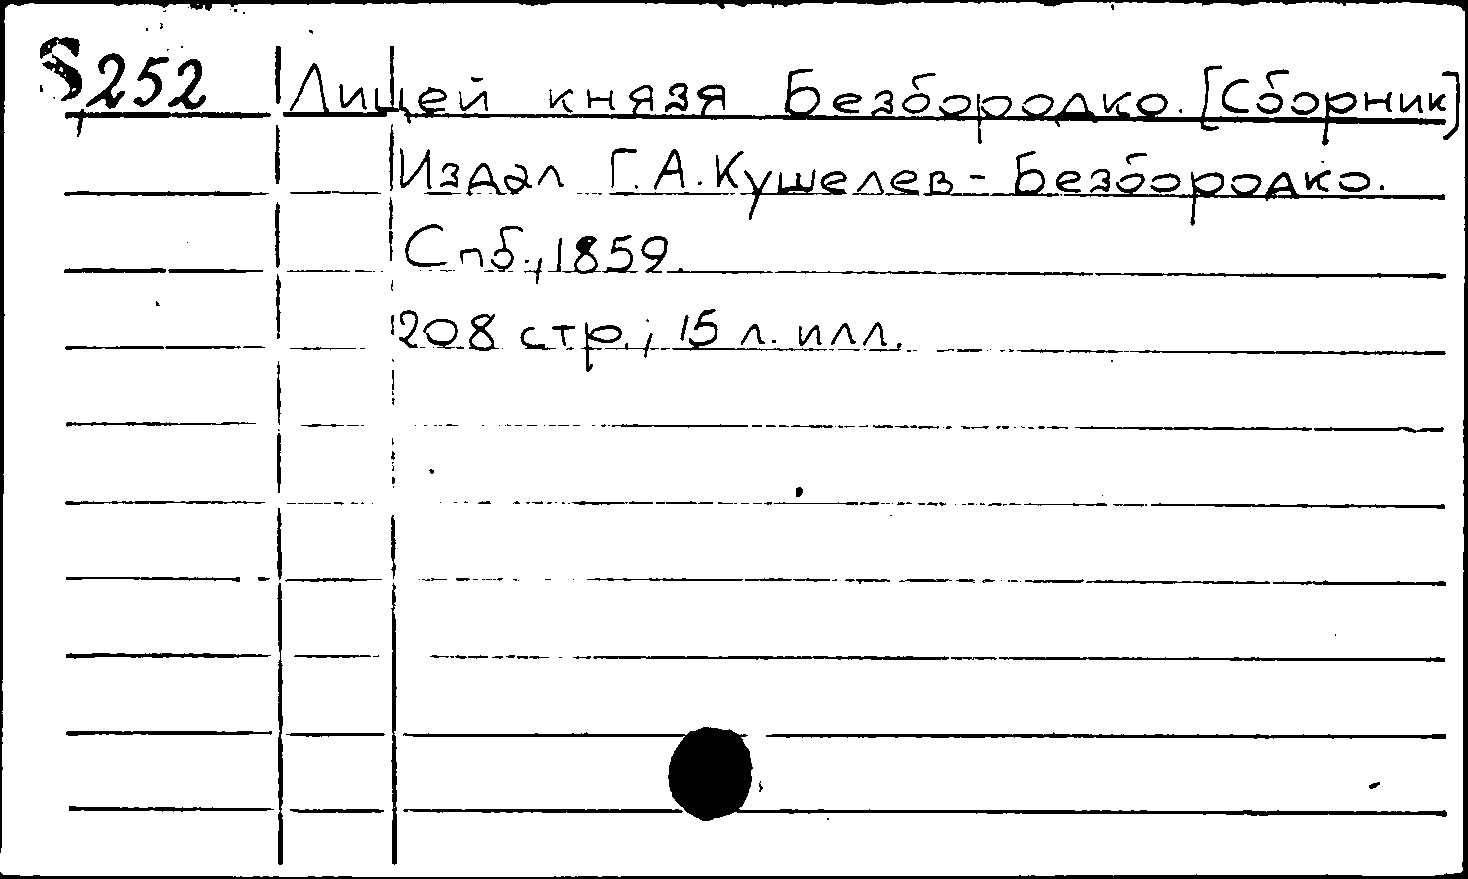 S252 Лицей князя Безбородко. [Сборник]
Издал Г. А. Кушелев - Безбородко.
Спб., 1859.
208 стр.; 15 л. илл.